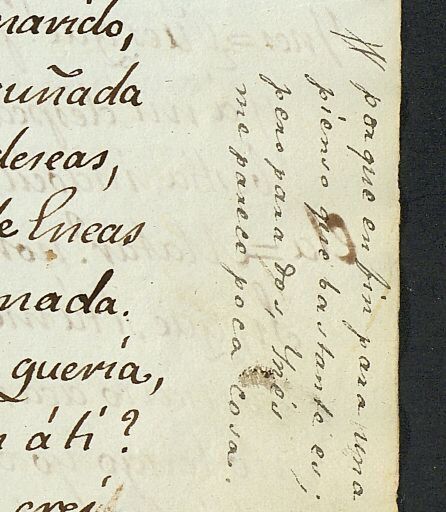 marido,
cuñada
deseas,
de Eneas
nada.
queria,
á ti?
crei
porque en fin para una
pienso que bastante es;
pero para dos, Ynés
me parece poca cosa.